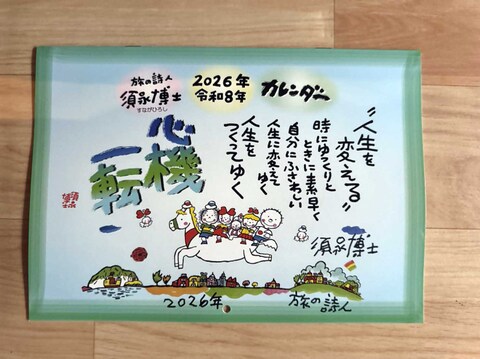 旅の詩人
須永博士
すながひろし
2026年
令和8年
カレンダー
心機
一転
“人生を
変える”
時にゆっくりと
ときに素早く
自分にふさわしい
人生に変えてゆく
人生を
つくってゆく
須永博士
旅の詩人
2026年